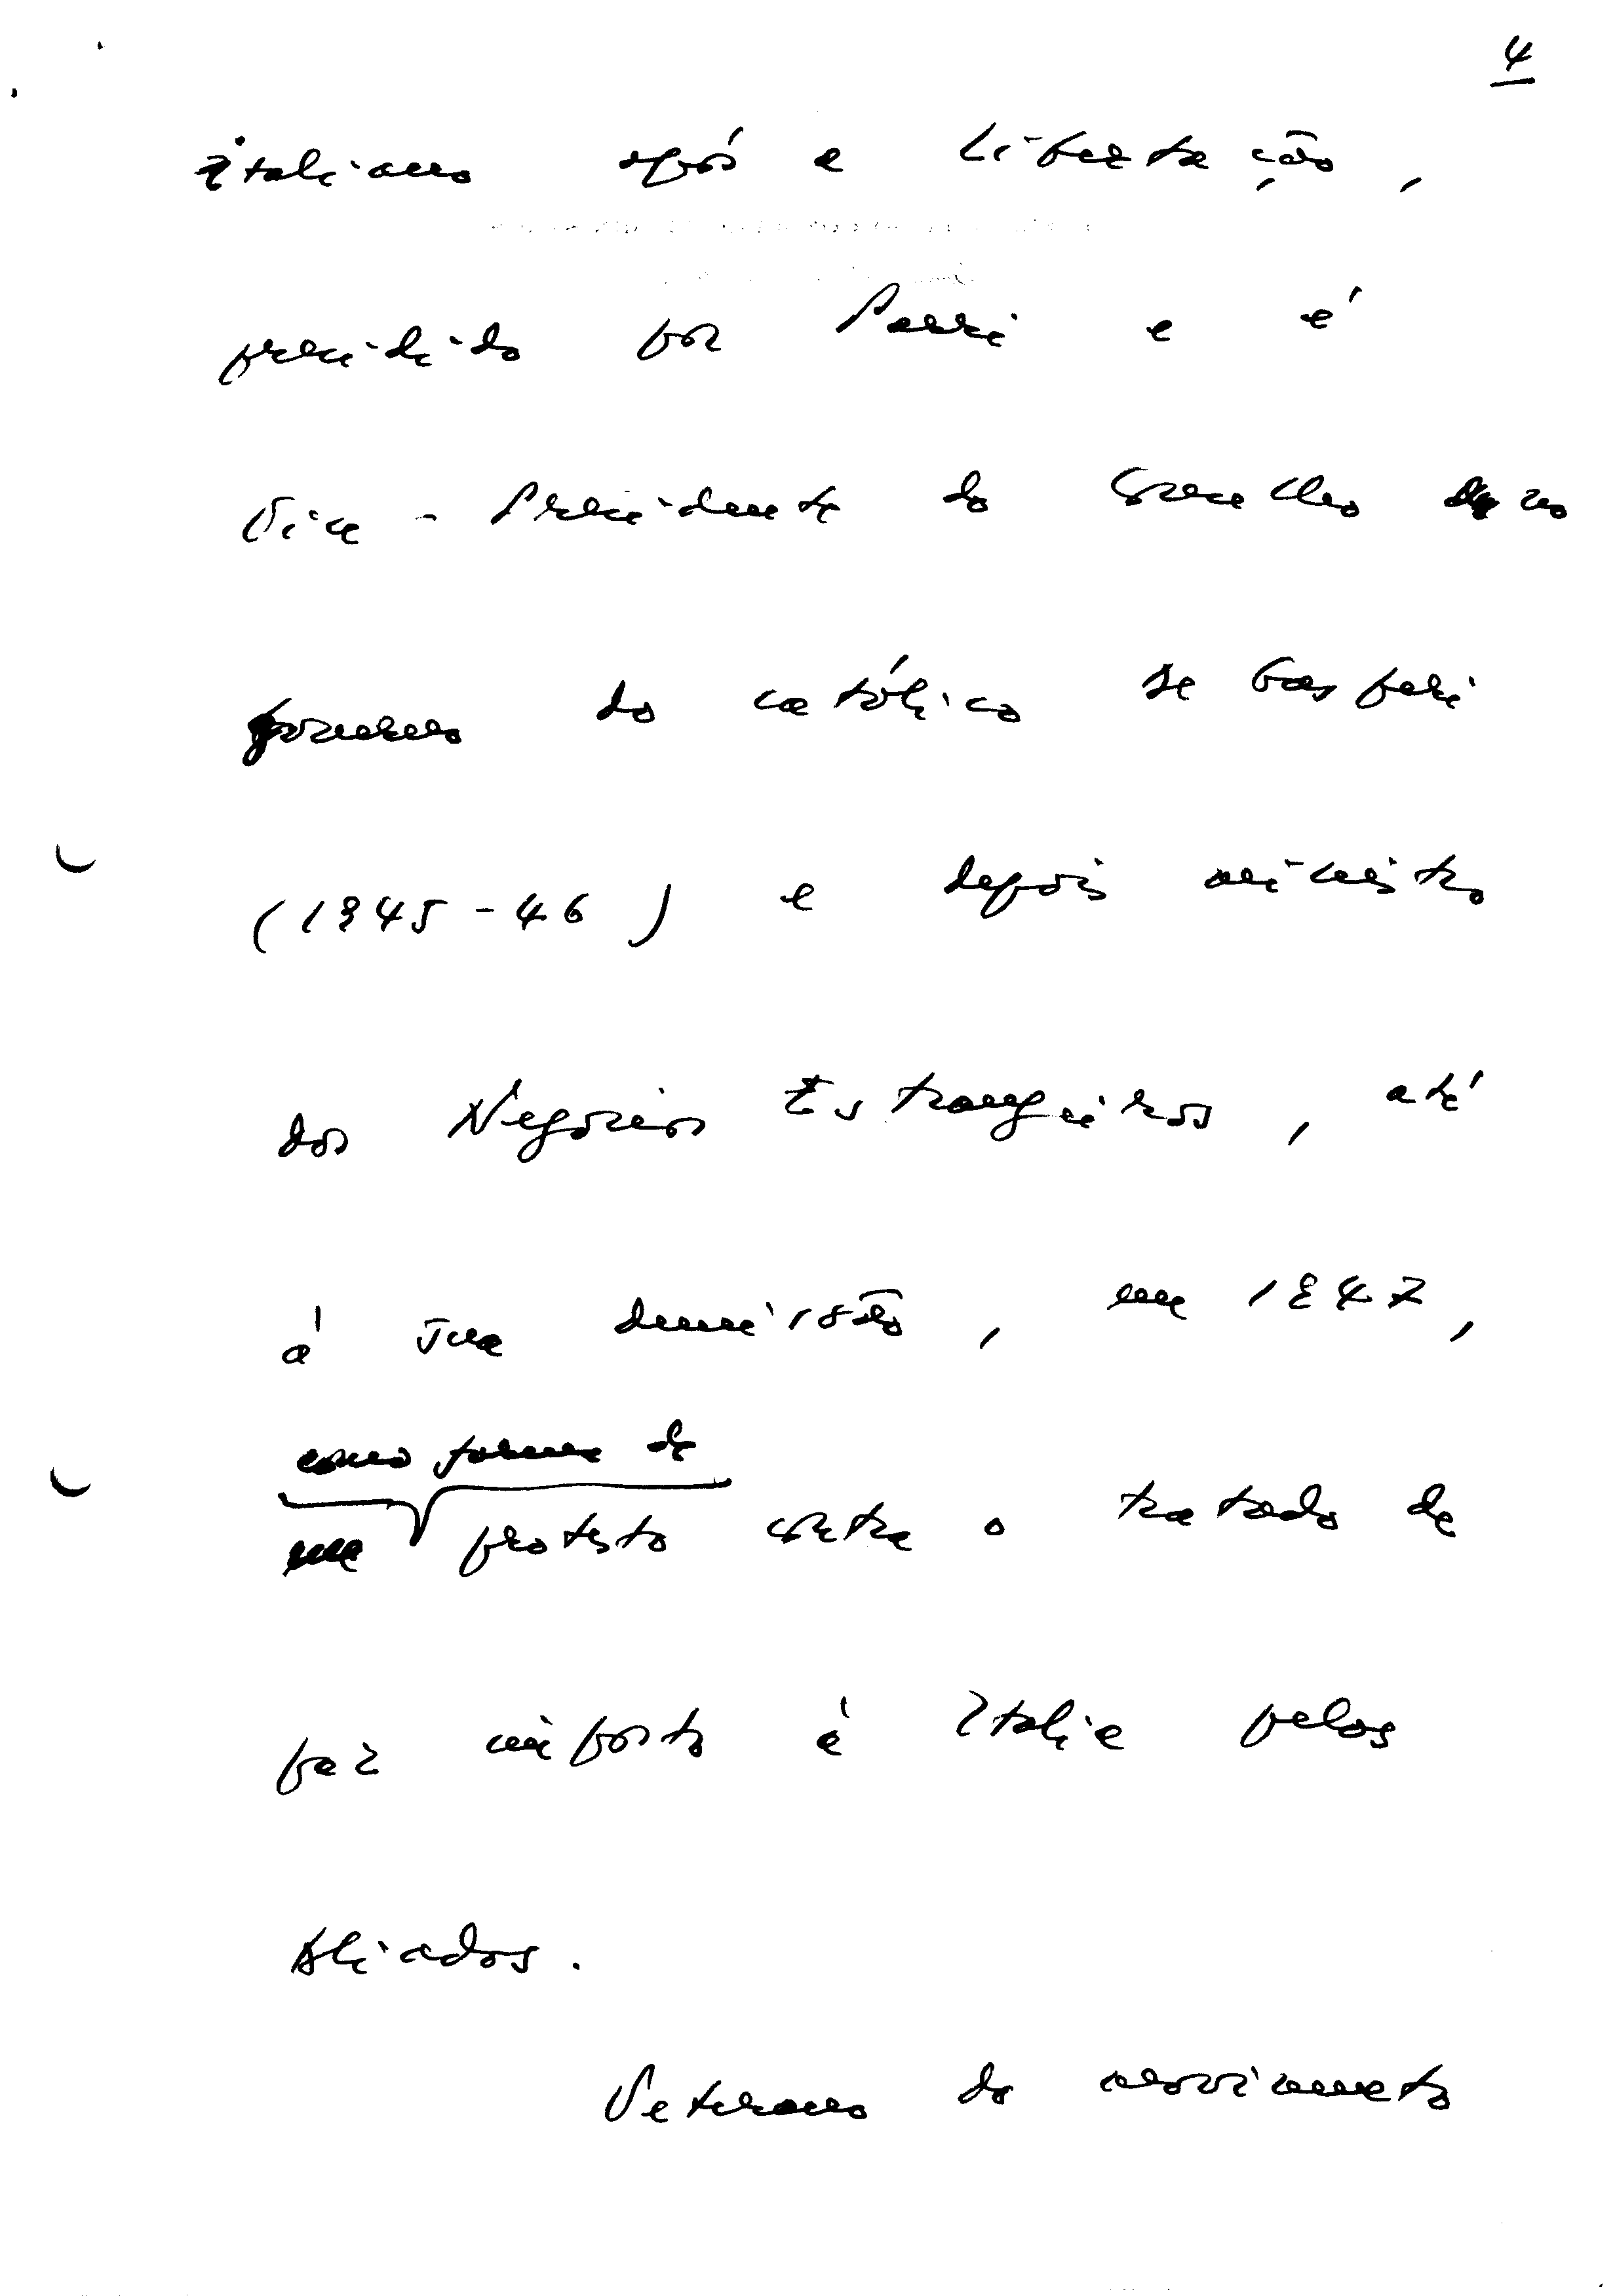 4
italiano após a Libertação,
presidido por Parri e é
Vice-Presidente do Conselho no
governo do católico de Gasperi
(1945-46) e depois ministro
dos Negócios Estrangeiros, até
à sua demissão, em 1947,
como forma de
protesto contra o tratado de
paz imposto à Itália pelos
Aliados.
Veterano do movimento